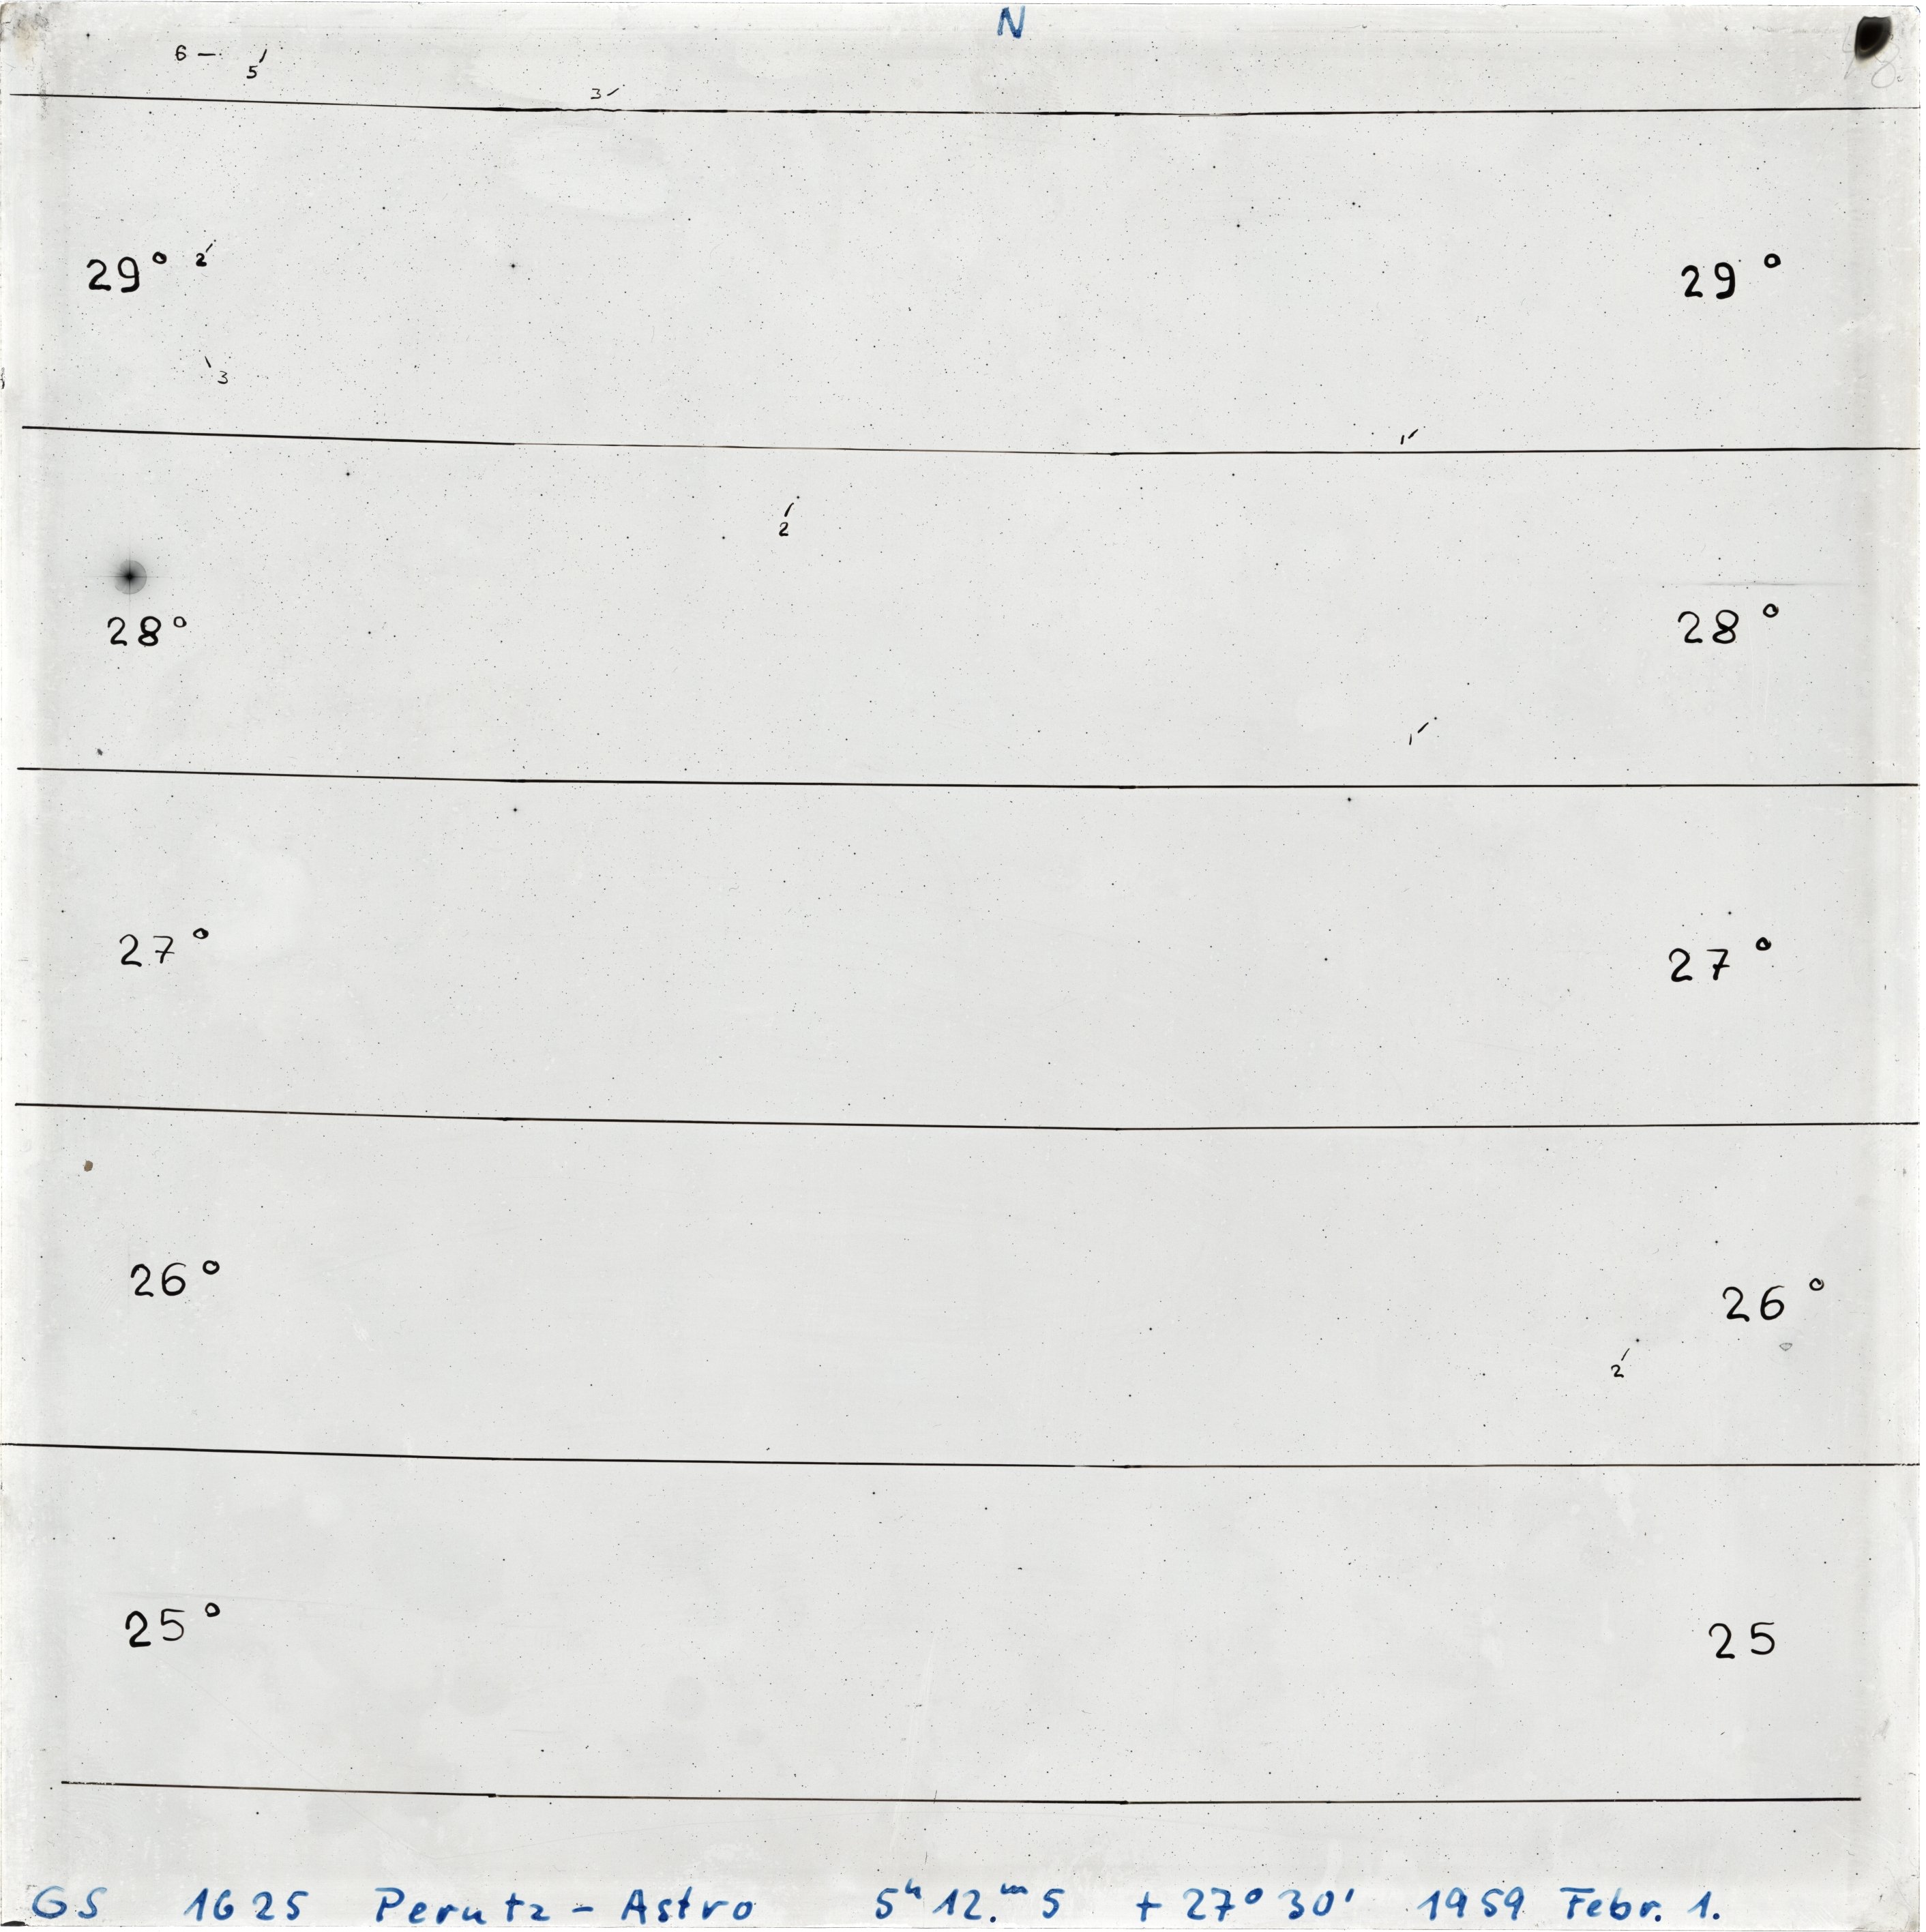 N
6 –
5
3
29° 2 29°
3
1
2
28° 28°
1
27° 27°
26° 26°
2
25° 25
GS 1625 Perutz - Astro 5ʰ 12.ᵐ 5 + 27° 30' 1959 Febr. 1.